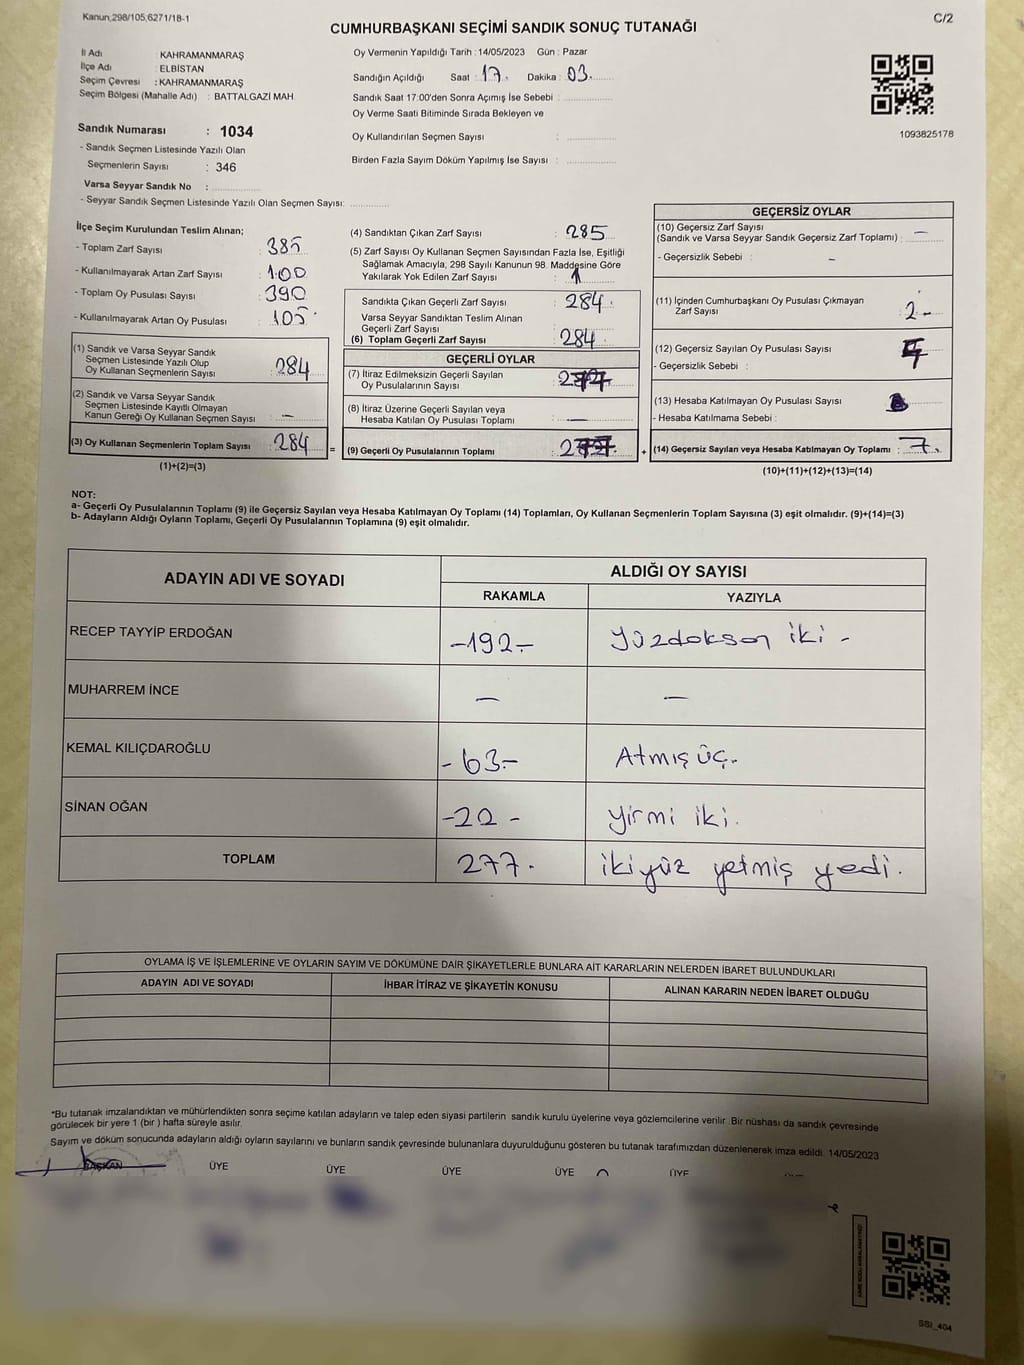 Kanun,298/105,6271/18-1
C/2
CUMHURBAŞKANI SEÇİMİ SANDIK SONUÇ TUTANAĞI
İl Adı : KAHRAMANMARAŞ
İlçe Adı : ELBİSTAN
Seçim Çevresi : KAHRAMANMARAŞ
Seçim Bölgesi (Mahalle Adı) : BATTALGAZİ MAH.
Sandık Numarası : 1034
- Sandık Seçmen Listesinde Yazılı Olan
Seçmenlerin Sayısı : 346
Varsa Seyyar Sandık No :
- Seyyar Sandık Seçmen Listesinde Yazılı Olan Seçmen Sayısı:
Oy Vermenin Yapıldığı Tarih : 14/05/2023 Gün : Pazar
Sandığın Açıldığı Saat : 17. Dakika : 03.
Sandık Saat 17:00'den Sonra Açımış İse Sebebi :
Oy Verme Saati Bitiminde Sırada Bekleyen ve
Oy Kullandırılan Seçmen Sayısı :
Birden Fazla Sayım Döküm Yapılmış İse Sayısı :
1093825178
İlçe Seçim Kurulundan Teslim Alınan;
- Toplam Zarf Sayısı : 385
- Kullanılmayarak Artan Zarf Sayısı : 100
- Toplam Oy Pusulası Sayısı : 390
- Kullanılmayarak Artan Oy Pusulası : 105
(1) Sandık ve Varsa Seyyar Sandık
Seçmen Listesinde Yazılı Olup
Oy Kullanan Seçmenlerin Sayısı : 284
(2) Sandık ve Varsa Seyyar Sandık
Seçmen Listesinde Kayıtlı Olmayan
Kanun Gereği Oy Kullanan Seçmen Sayısı : —
(3) Oy Kullanan Seçmenlerin Toplam Sayısı : 284
(1)+(2)=(3)
=
(4) Sandıktan Çıkan Zarf Sayısı : 285
(5) Zarf Sayısı Oy Kullanan Seçmen Sayısından Fazla İse, Eşitliği
Sağlamak Amacıyla, 298 Sayılı Kanunun 98. Maddesine Göre
Yakılarak Yok Edilen Zarf Sayısı : 1
Sandıkta Çıkan Geçerli Zarf Sayısı : 284.
Varsa Seyyar Sandıktan Teslim Alınan
Geçerli Zarf Sayısı :
(6) Toplam Geçerli Zarf Sayısı : 284.
GEÇERLİ OYLAR
(7) İtiraz Edilmeksizin Geçerli Sayılan
Oy Pusulalarının Sayısı : 277
(8) İtiraz Üzerine Geçerli Sayılan veya
Hesaba Katılan Oy Pusulası Toplamı : —
(9) Geçerli Oy Pusulalarının Toplamı : 277.
+
GEÇERSİZ OYLAR
(10) Geçersiz Zarf Sayısı
(Sandık ve Varsa Seyyar Sandık Geçersiz Zarf Toplamı) : —
- Geçersizlik Sebebi : —
(11) İçinden Cumhurbaşkanı Oy Pusulası Çıkmayan
Zarf Sayısı : 2 -
(12) Geçersiz Sayılan Oy Pusulası Sayısı :
- Geçersizlik Sebebi :
(13) Hesaba Katılmayan Oy Pusulası Sayısı :
- Hesaba Katılmama Sebebi :
(14) Geçersiz Sayılan veya Hesaba Katılmayan Oy Toplamı : 7.
(10)+(11)+(12)+(13)=(14)
NOT:
a- Geçerli Oy Pusulalarının Toplamı (9) ile Geçersiz Sayılan veya Hesaba Katılmayan Oy Toplamı (14) Toplamları, Oy Kullanan Seçmenlerin Toplam Sayısına (3) eşit olmalıdır. (9)+(14)=(3)
b- Adayların Aldığı Oyların Toplamı, Geçerli Oy Pusulalarının Toplamına (9) eşit olmalıdır.
ADAYIN ADI VE SOYADI
ALDIĞI OY SAYISI
RAKAMLA YAZIYLA
RECEP TAYYİP ERDOĞAN -192- Yüzdoksan iki -
MUHARREM İNCE — —
KEMAL KILIÇDAROĞLU - 63 - Atmış üç.
SİNAN OĞAN -22 - yirmi iki.
TOPLAM 277. ikiyüz yetmiş yedi.
OYLAMA İŞ VE İŞLEMLERİNE VE OYLARIN SAYIM VE DÖKÜMÜNE DAİR ŞİKAYETLERLE BUNLARA AİT KARARLARIN NELERDEN İBARET BULUNDUKLARI
ADAYIN ADI VE SOYADI İHBAR İTİRAZ VE ŞİKAYETİN KONUSU ALINAN KARARIN NEDEN İBARET OLDUĞU
*Bu tutanak imzalandıktan ve mühürlendikten sonra seçime katılan adayların ve talep eden siyasi partilerin sandık kurulu üyelerine veya gözlemcilerine verilir. Bir nüshası da sandık çevresinde
görülecek bir yere 1 (bir ) hafta süreyle asılır.
Sayım ve döküm sonucunda adayların aldığı oyların sayılarını ve bunların sandık çevresinde bulunanlara duyurulduğunu gösteren bu tutanak tarafımızdan düzenlenerek imza edildi. 14/05/2023
BAŞKAN ÜYE ÜYE ÜYE ÜYE ÜYE
SSI_404